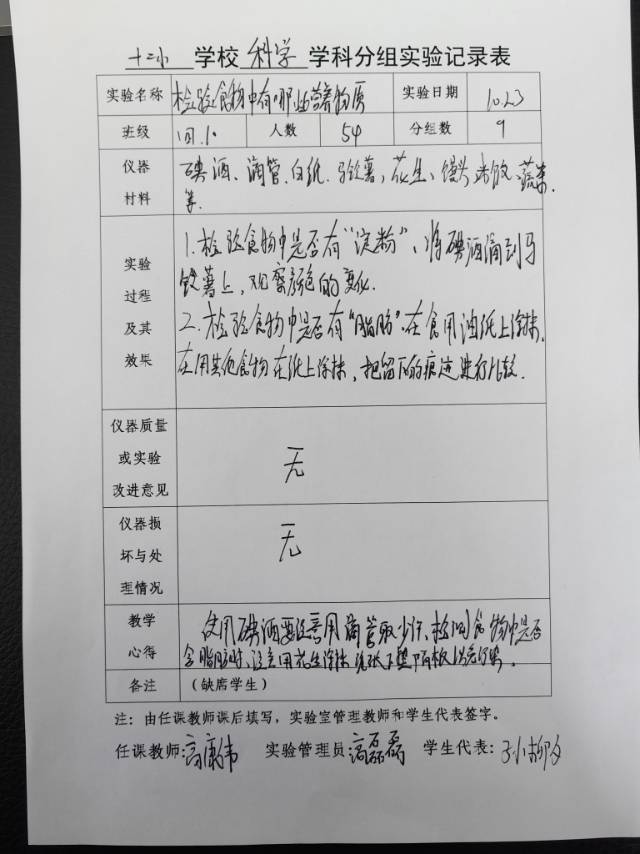 十二小 学校 科学 学科分组实验记录表
实验名称 检验食物中有哪些营养物质 实验日期 10.23
班级 四.10 人数 54 分组数 9
仪器材料 碘酒、滴管.白纸.马铃薯,花生、馒头 米饭 蔬菜.
等.
实验过程及其效果
1.检验食物中是否有“淀粉”、将碘酒滴到马
铃薯上,观察颜色的变化.
2.检验食物中是否有“脂肪”.在食用油纸上涂抹.
在用其他食物在纸上涂抹,把留下的痕迹进行比较.
仪器质量或实验改进意见 无
仪器损坏与处理情况 无
教学心得
使用碘酒要注意用滴管取少许,检测食物中是否
含脂肪时,注意用花生涂抹
备注 (缺席学生)
注:由任课教师课后填写,实验室管理教师和学生代表签字。
任课教师:高康伟 实验管理员:高磊磊 学生代表: